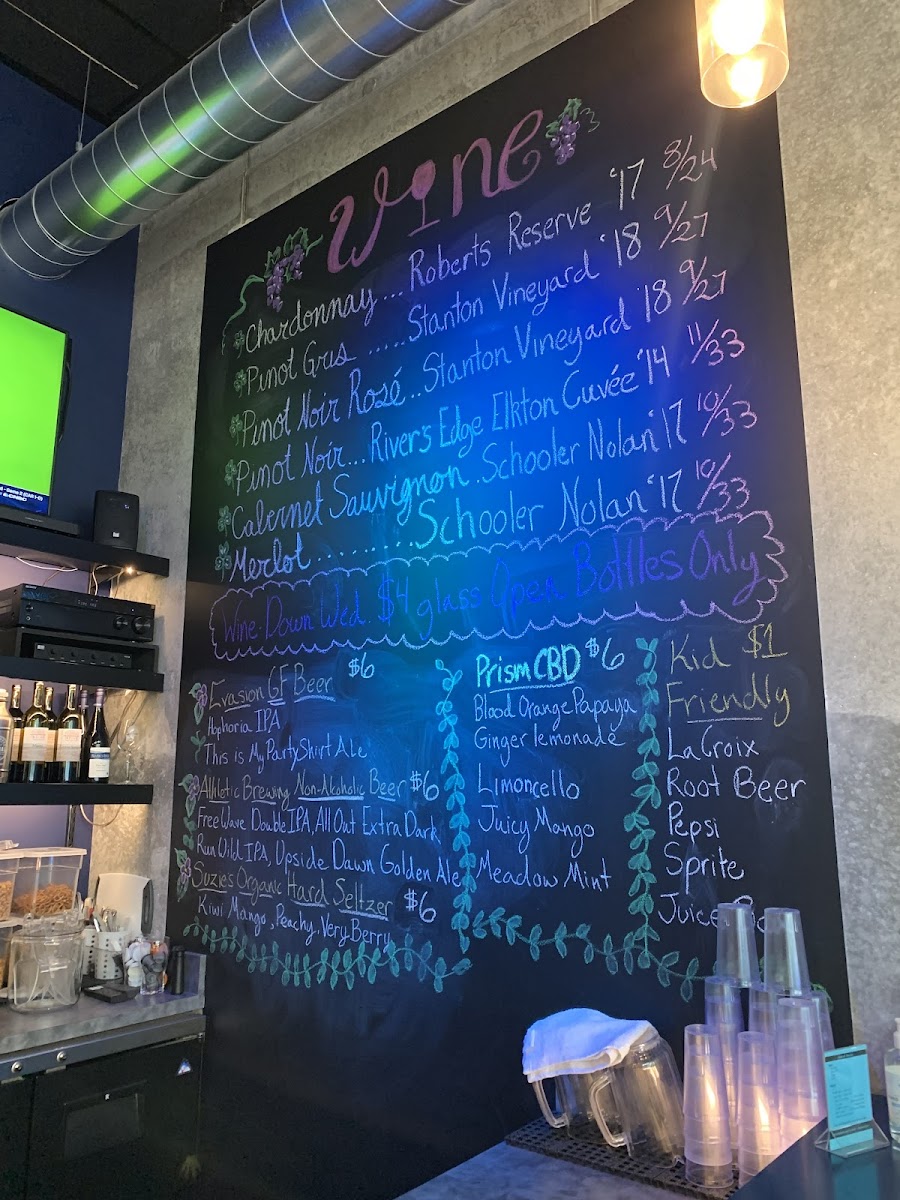 Wine
Chardonnay... Roberts Reserve '17 8/24
Pinot Gris ..... Stanton Vineyard '18 9/27
Pinot Noir Rosé.. Stanton Vineyard '18 9/27
Pinot Noir... River's Edge Elkton Cuvée '14 11/33
Cabernet Sauvignon.. Schooler Nolan '17 10/33
Merlot ......... Schooler Nolan '17 10/33
Wine-Down Wed. $4 glass Open Bottles Only
Evasion GF Beer $6
Hophoria IPA
This is My Party Shirt Ale
Athletic Brewing Non-Alcoholic Beer $6
Free Wave Double IPA, All Out Extra Dark
Run Wild IPA, Upside Dawn Golden Ale
Suzie's Organic Hard Seltzer $6
Kiwi Mango, Peachy, Very Berry
Prism CBD $6
Blood Orange Papaya
Ginger lemonade
Limoncello
Juicy Mango
Meadow Mint
Kid $1
Friendly
LaCroix
Root Beer
Pepsi
Sprite
Juice